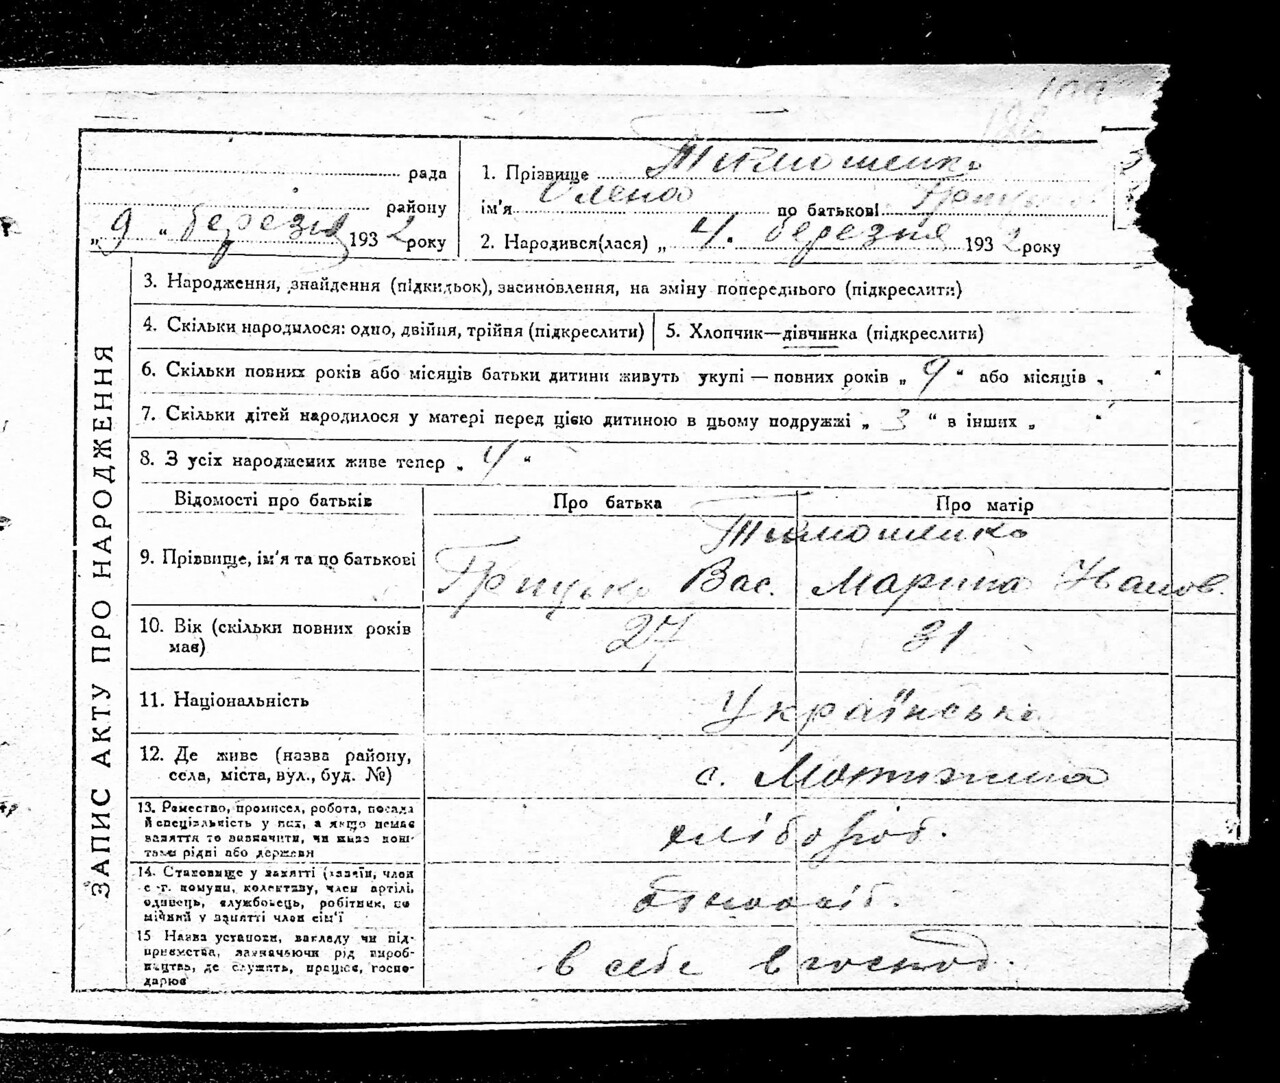 рада
району
„ 9 " березня 1932 року
1. Прізвище Тимошенко
ім'я Олена по батькові Грицьков
2. Народився(лася) „ 4. березня 1932 року
ЗАПИС АКТУ ПРО НАРОДЖЕННЯ
3. Народження, знайдення (підкидьок), засиновлення, на зміну попереднього (підкреслити)
4. Скільки народилося: одно, двійня, трійня (підкреслити)
5. Хлопчик—дівчинка (підкреслити)
6. Скільки повних років або місяців батьки дитини живуть укупі — повних років „ 9 " або місяців „ "
7. Скільки дітей народилося у матері перед цією дитиною в цьому подружжі „ 3 " в інших „ "
8. З усіх народжених живе тепер „ 4 "
Відомості про батьків
Про батька
Про матір
9. Прізвище, ім'я та по батькові
Тимошенко
Грицько Вас. Марина Іванов.
10. Вік (скільки повних років
має)
27
31
11. Національність
Українська
12. Де живе (назва району,
села, міста, вул., буд. №)
с. Мотижина
13. Ремество, промисел, робота, посада
й спеціяльність у них, а якщо немає
заняття то визначити, чи живе кош-
тами рідні або держави
хлібороб.
14. Становище у занятті (хазяїн, член
с.-г. комуни, колективу, член артілі,
одинець, службовець, робітник, по
мічний у занятті член сім'ї
15 Назва установи, закладу чи під-
приємства, зазначаючи рід вироб-
ництва, де служить, працює, госпо-
дарює
в себе в господ.